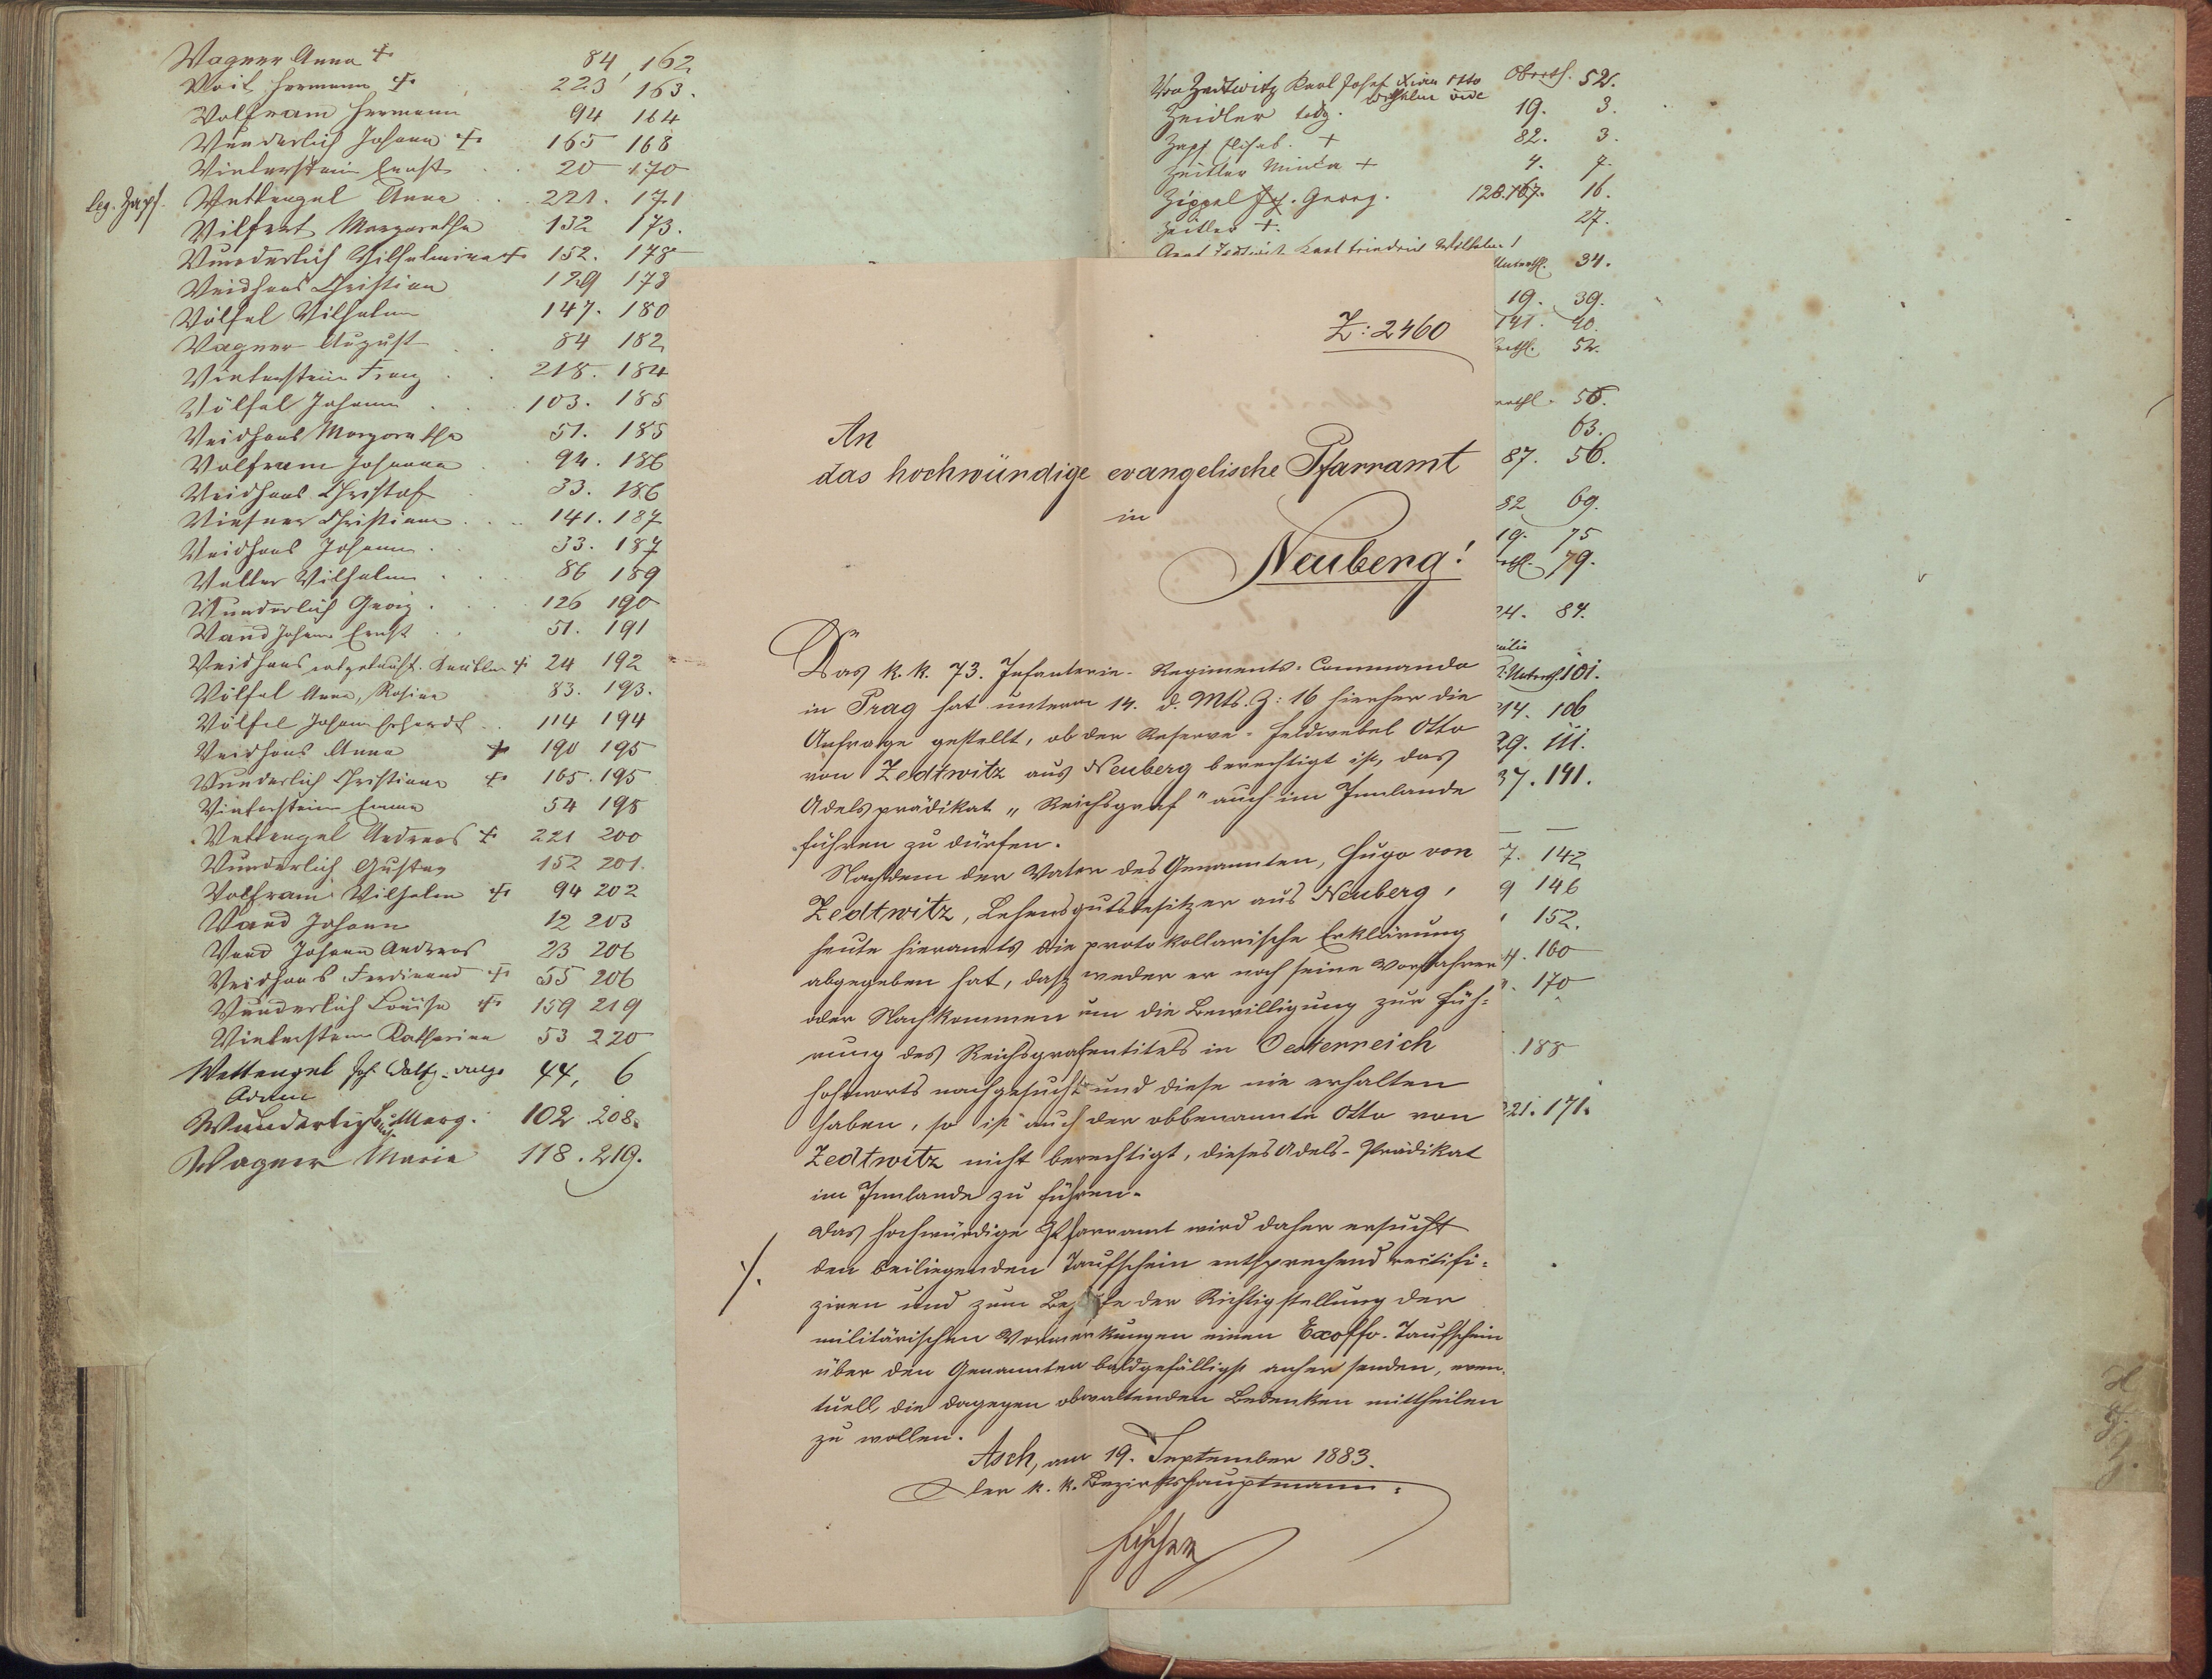 Wagner Anna + 84 162
Weil Hermann + 223 163.
Wolfram Hermann 94 164
Wunderlich Johann + 165 168
Winterstein Ernst 20 170
leg. Zapf. Wettengel Anna 221. 171
Wilfert Margaretha 132 173.
Wunderlich Wilhelmine + 152. 178
Weidhaas Christian 129 178
Wölfel Wilhelm 147. 180
Wagner August 84 182
Winterstein Franz 218. 184
Wölfel Johann 103. 185
Weidhaas Margaretha 51. 185
Wolfram Johanna 94. 186
Weidhaas Christof 33. 186
Christiana 141. 187
Weidhaas Johann 33. 187
Walter Wilhelm 86 189
Wunderlich Georg 126 190
Wand Johann Ernst 51. 191
Weidhaas notgetauft. + 24 192
Wölfel Anna, Rosina 83. 193.
Wölfel Johann Erhardt 114 194
Weidhaas Anna + 190 195
Wunderlich Christiana + 165. 195
Winterstein Emma 54 198
Wettengel Andreas + 221 200
Wunderlich Gustav 152 201.
Wolfram Wilhelm + 94 202
Wand Johann 12 203
Wand Johann Andreas 23 206
Weidhaas Ferdinand + 55 206
Wunderlich Louisa + 159 219
Winterstein Katharina 53 220
Wettengel Joh. Wolfg. 44, 6
Adam
Wunderlich Marg. 102 208.
Wagner Maria 118. 219.
Von Zedtwitz Karl Josef Otto Oberth. 52.
Wilhelm
Zeidler todg. 19. 3.
Zapf Elisab. + 82. 3.
Zeitler Minka + 4. 7.
Zippel Georg. 128. 167. 16.
Zeitler +. 27.
Graf Zedtwitz Karl Friedrich Wilhelm
Unterth. 34.
19. 39.
141. 40.
52.
56.
63.
87. 56.
82 69.
19. 75
79.
24. 84.
Unterth. 101.
214. 106
29. 111.
37. 141.
7. 142
9 146
152.
4. 160
170
188
221. 171.
Z: 2460
An
das hochwürdige evangelische Pfarramt
in
Neuberg!
Das k. k. 73. Infanterie-Regiments-Commando
in Prag hat unterm 14. d. Mts. Z: 16 hierher die
Anfrage gestellt, ob der Reserve-Feldwebel Otto
von Zedtwitz aus Neuberg berechtigt ist, das
Adelsprädikat „Reichsgraf" auch im Innlande
führen zu dürfen.
Nachdem der Vater des Genannten, Hugo von
Zedtwitz, Lehensgutsbesitzer aus Neuberg,
heute hieramts die protokollarische Erklärung
abgegeben hat, daß weder er noch seine Vorfahren
oder Nachkommen um die Bewilligung zur Füh-
rung des Reichsgrafentitels in Oesterreich
hohenorts nachgesucht und diese nie erhalten
haben, so ist auch der obbenannte Otto von
Zedtwitz nicht berechtigt, dieses Adels-Prädikat
im Innlande zu führen.
Das hochwürdige Pfarramt wird daher ersucht
./. den beiliegenden Taufschein entsprechend rectifi-
ziren und zum Behufe der Richtigstellung der
militärischen Vormerkungen einen Exoffo-Taufschein
über den Genannten baldgefälligst anher senden, even-
tuell, die dagegen obwaltenden Bedenken mittheilen
zu wollen.
Asch, am 19. September 1883.
Der k. k. Bezirkshauptmann: